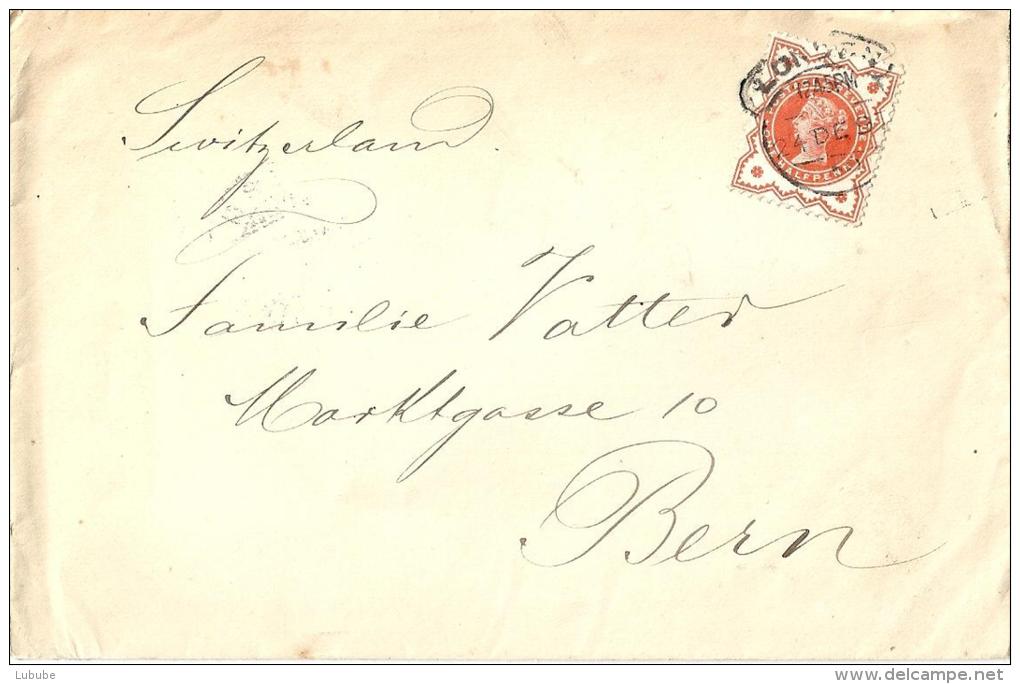 Switzerland.
LON
12.45PM
24 DE
HALFPENNY
Familie Vatter
Marktgasse 10
Bern
Lubube
delcampe.net